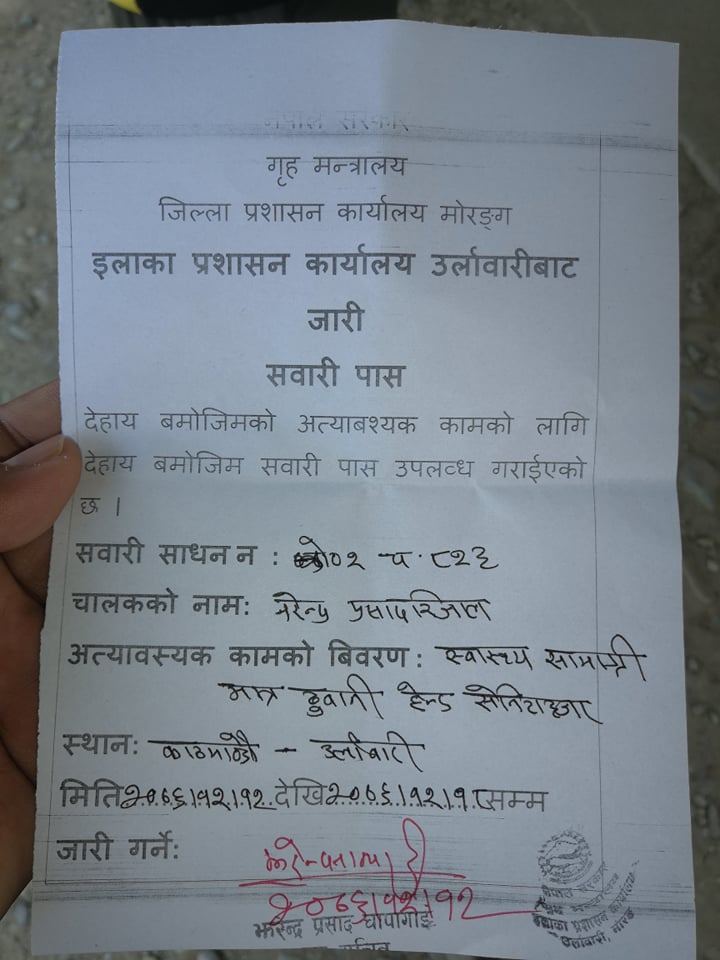 नेपाल सरकार
गृह मन्त्रालय
जिल्ला प्रशासन कार्यालय मोरङ्ग
इलाका प्रशासन कार्यालय उर्लावारीबाट
जारी
सवारी पास
देहाय बमोजिमको अत्याबश्यक कामको लागि
देहाय बमोजिम सवारी पास उपलव्ध गराईएको
छ ।
सवारी साधन न : को०२ च ८२६
चालकको नाम: नरेन्द्र प्रसाद रिजाल
अत्यावस्यक कामको बिवरण : स्वास्थ्य सामाग्री
मात्र ढुवानी हेन्ड सेनिटाइजर
स्थान: काठमाण्डौ – उर्लाबारी
मिति २०७६।१२।१२ देखि २०७६।१२।१८ सम्म
जारी गर्ने:
२०७६।१२।१२
प्रसाद
इलाका प्रशासन कार्यालय
उर्लावारी, मोरङ